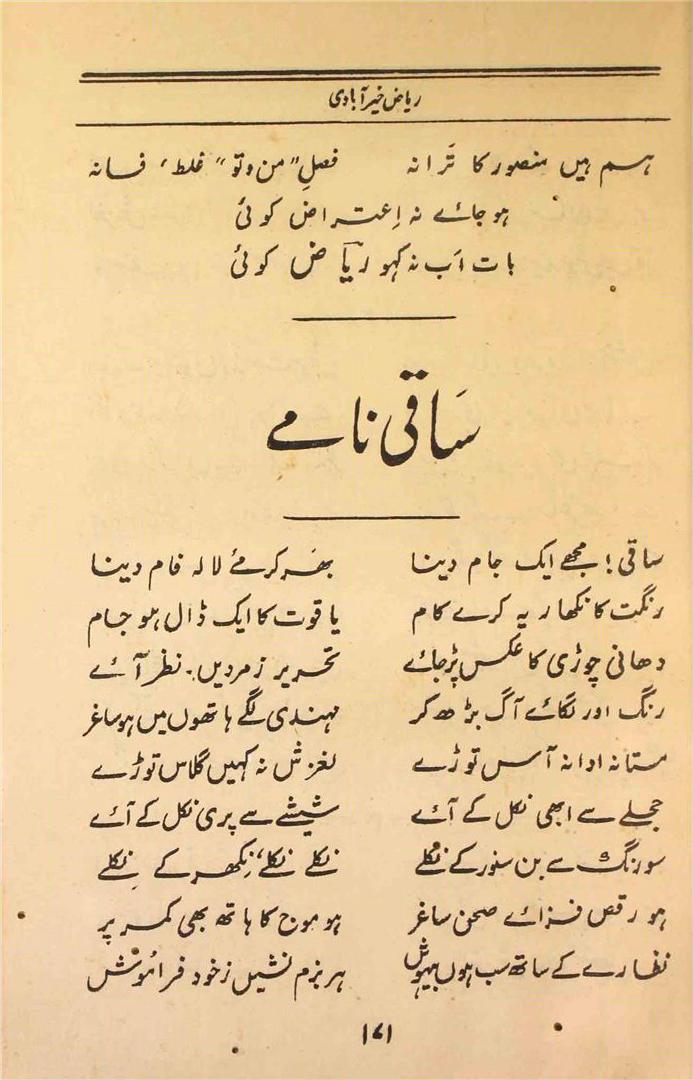 ریاض خیرآبادی
ہم ہیں منصور کا ترانہ فصلِ "من و تو" غلط، فسانہ
ہو جائے نہ اِعتراض کوئی
بات اَب نہ کہو ریاض کوئی
سَاقی نامے
ساقی! مجھے ایک جام دینا بھَر کر مئے لالہ فام دینا
رنگت کا نکھار یہ کرے کام یاقوت کا ایک ڈال ہو جام
دھانی چوڑی کا عکس پڑ جائے تحریر زمردیں نظر آئے
رنگ اور لگائے آگ بڑھ کر مہندی لگے ہاتھوں میں ہو ساغر
مستانہ ادا نہ آس توڑے لغزش نہ کہیں گلاس توڑے
حجلے سے ابھی نکل کے آئے شیشے سے پری نکل کے آئے
سو رنگ سے بن سنور کے نکلے نکلے نکلے، نِکھر کے نِکلے
ہو رقص فزائے صحنِ ساغر ہو موج کا ہاتھ بھی کمر پر
نظارے کے ساتھ سب ہوں بیہوش ہر بزم نشیں ز خود فراموش
۱۷۱